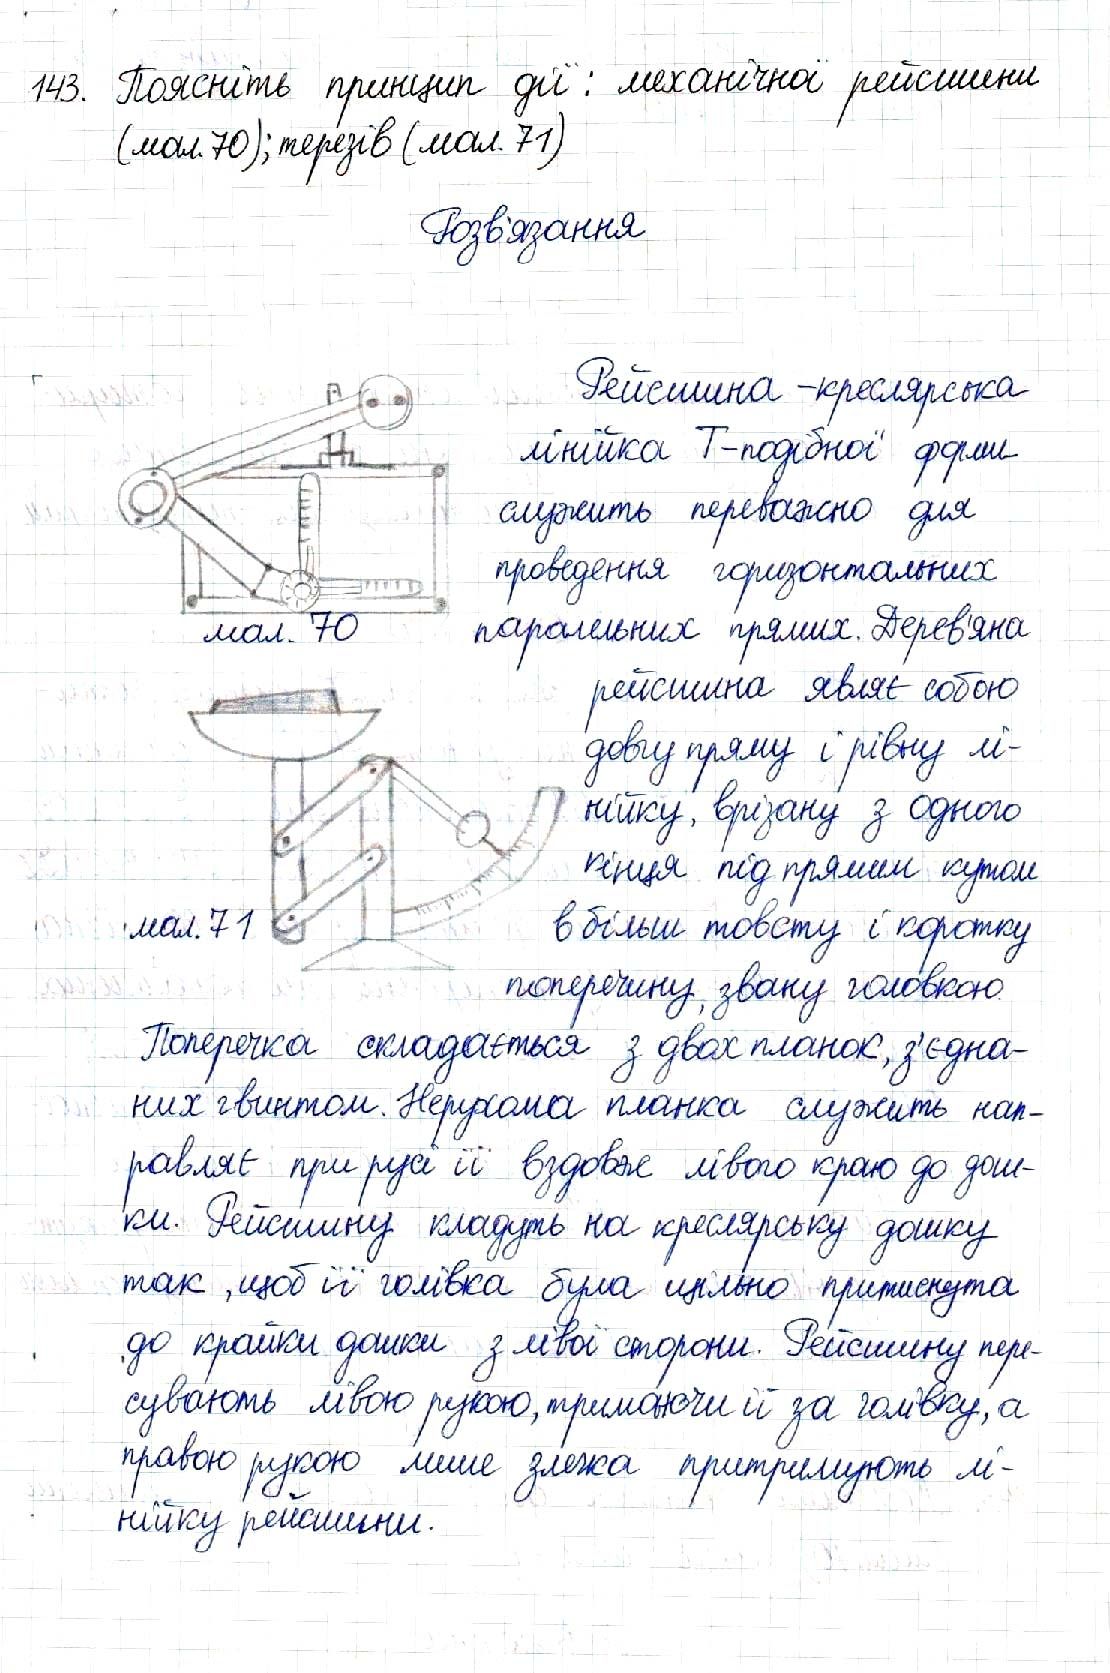 143. Поясніть принцип дії: механічної рейсшини
(мал. 70); терезів (мал. 71)
Розв'язання
Рейсшина - креслярська
лінійка Т-подібної форми
служить переважно для
проведення горизонтальних
мал. 70
паралельних прямих. Дерев'яна
рейсшина являє собою
довгу пряму і рівну лі-
нійку, врізану з одного
кінця під прямим кутом
мал. 71
в більш товсту і коротку
поперечину, звану головкою.
Поперечка складається з двох планок, з'єдна-
них гвинтом. Нерухома планка служить нап-
равляє при русі її вздовж лівого краю до дош-
ки. Рейсшину кладуть на креслярську дошку
так, щоб її голівка була щільно притиснута
до крайки дошки з лівої сторони. Рейсшину пере-
сувають лівою рукою, тримаючи її за голівку, а
правою рукою лише злегка притримують лі-
нійку рейсшини.